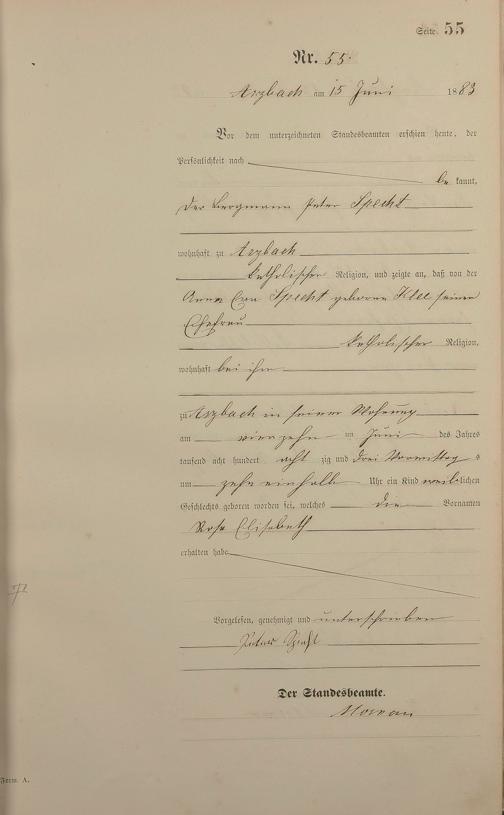 Seite 55
Nr. 55.
Arzbach am 15 Juni 1883
Vor dem unterzeichneten Standesbeamten erschien heute, der
Persönlichkeit nach
be kannt,
der Bergmann Peter Specht
wohnhaft zu Arzbach
katholischer Religion, und zeigte an, daß von der
Anna Eva Specht geborne Klee seiner
Ehefrau
katholischer Religion,
wohnhaft bei ihm
zu Arzbach in seiner Wohnung
am vierzehn im Juni des Jahres
tausend acht hundert acht zig und drei Vormittag s
um zehn einhalb Uhr ein Kind weiblichen
Geschlechts geboren worden sei, welches die Vornamen
Rosa Elisabeth
erhalten habe
Vorgelesen, genehmigt und unterschrieben
Peter Specht
Der Standesbeamte.
Form. A.